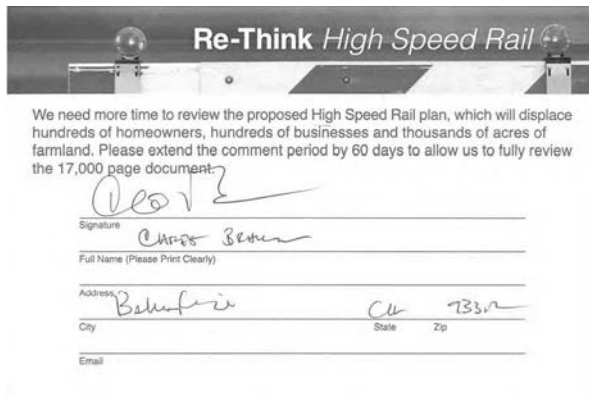 Re-Think High Speed Rail
We need more time to review the proposed High Speed Rail plan, which will displace
hundreds of homeowners, hundreds of businesses and thousands of acres of
farmland. Please extend the comment period by 60 days to allow us to fully review
the 17,000 page document.
Signature
Full Name (Please Print Clearly)
Address
CA
City State Zip
Email